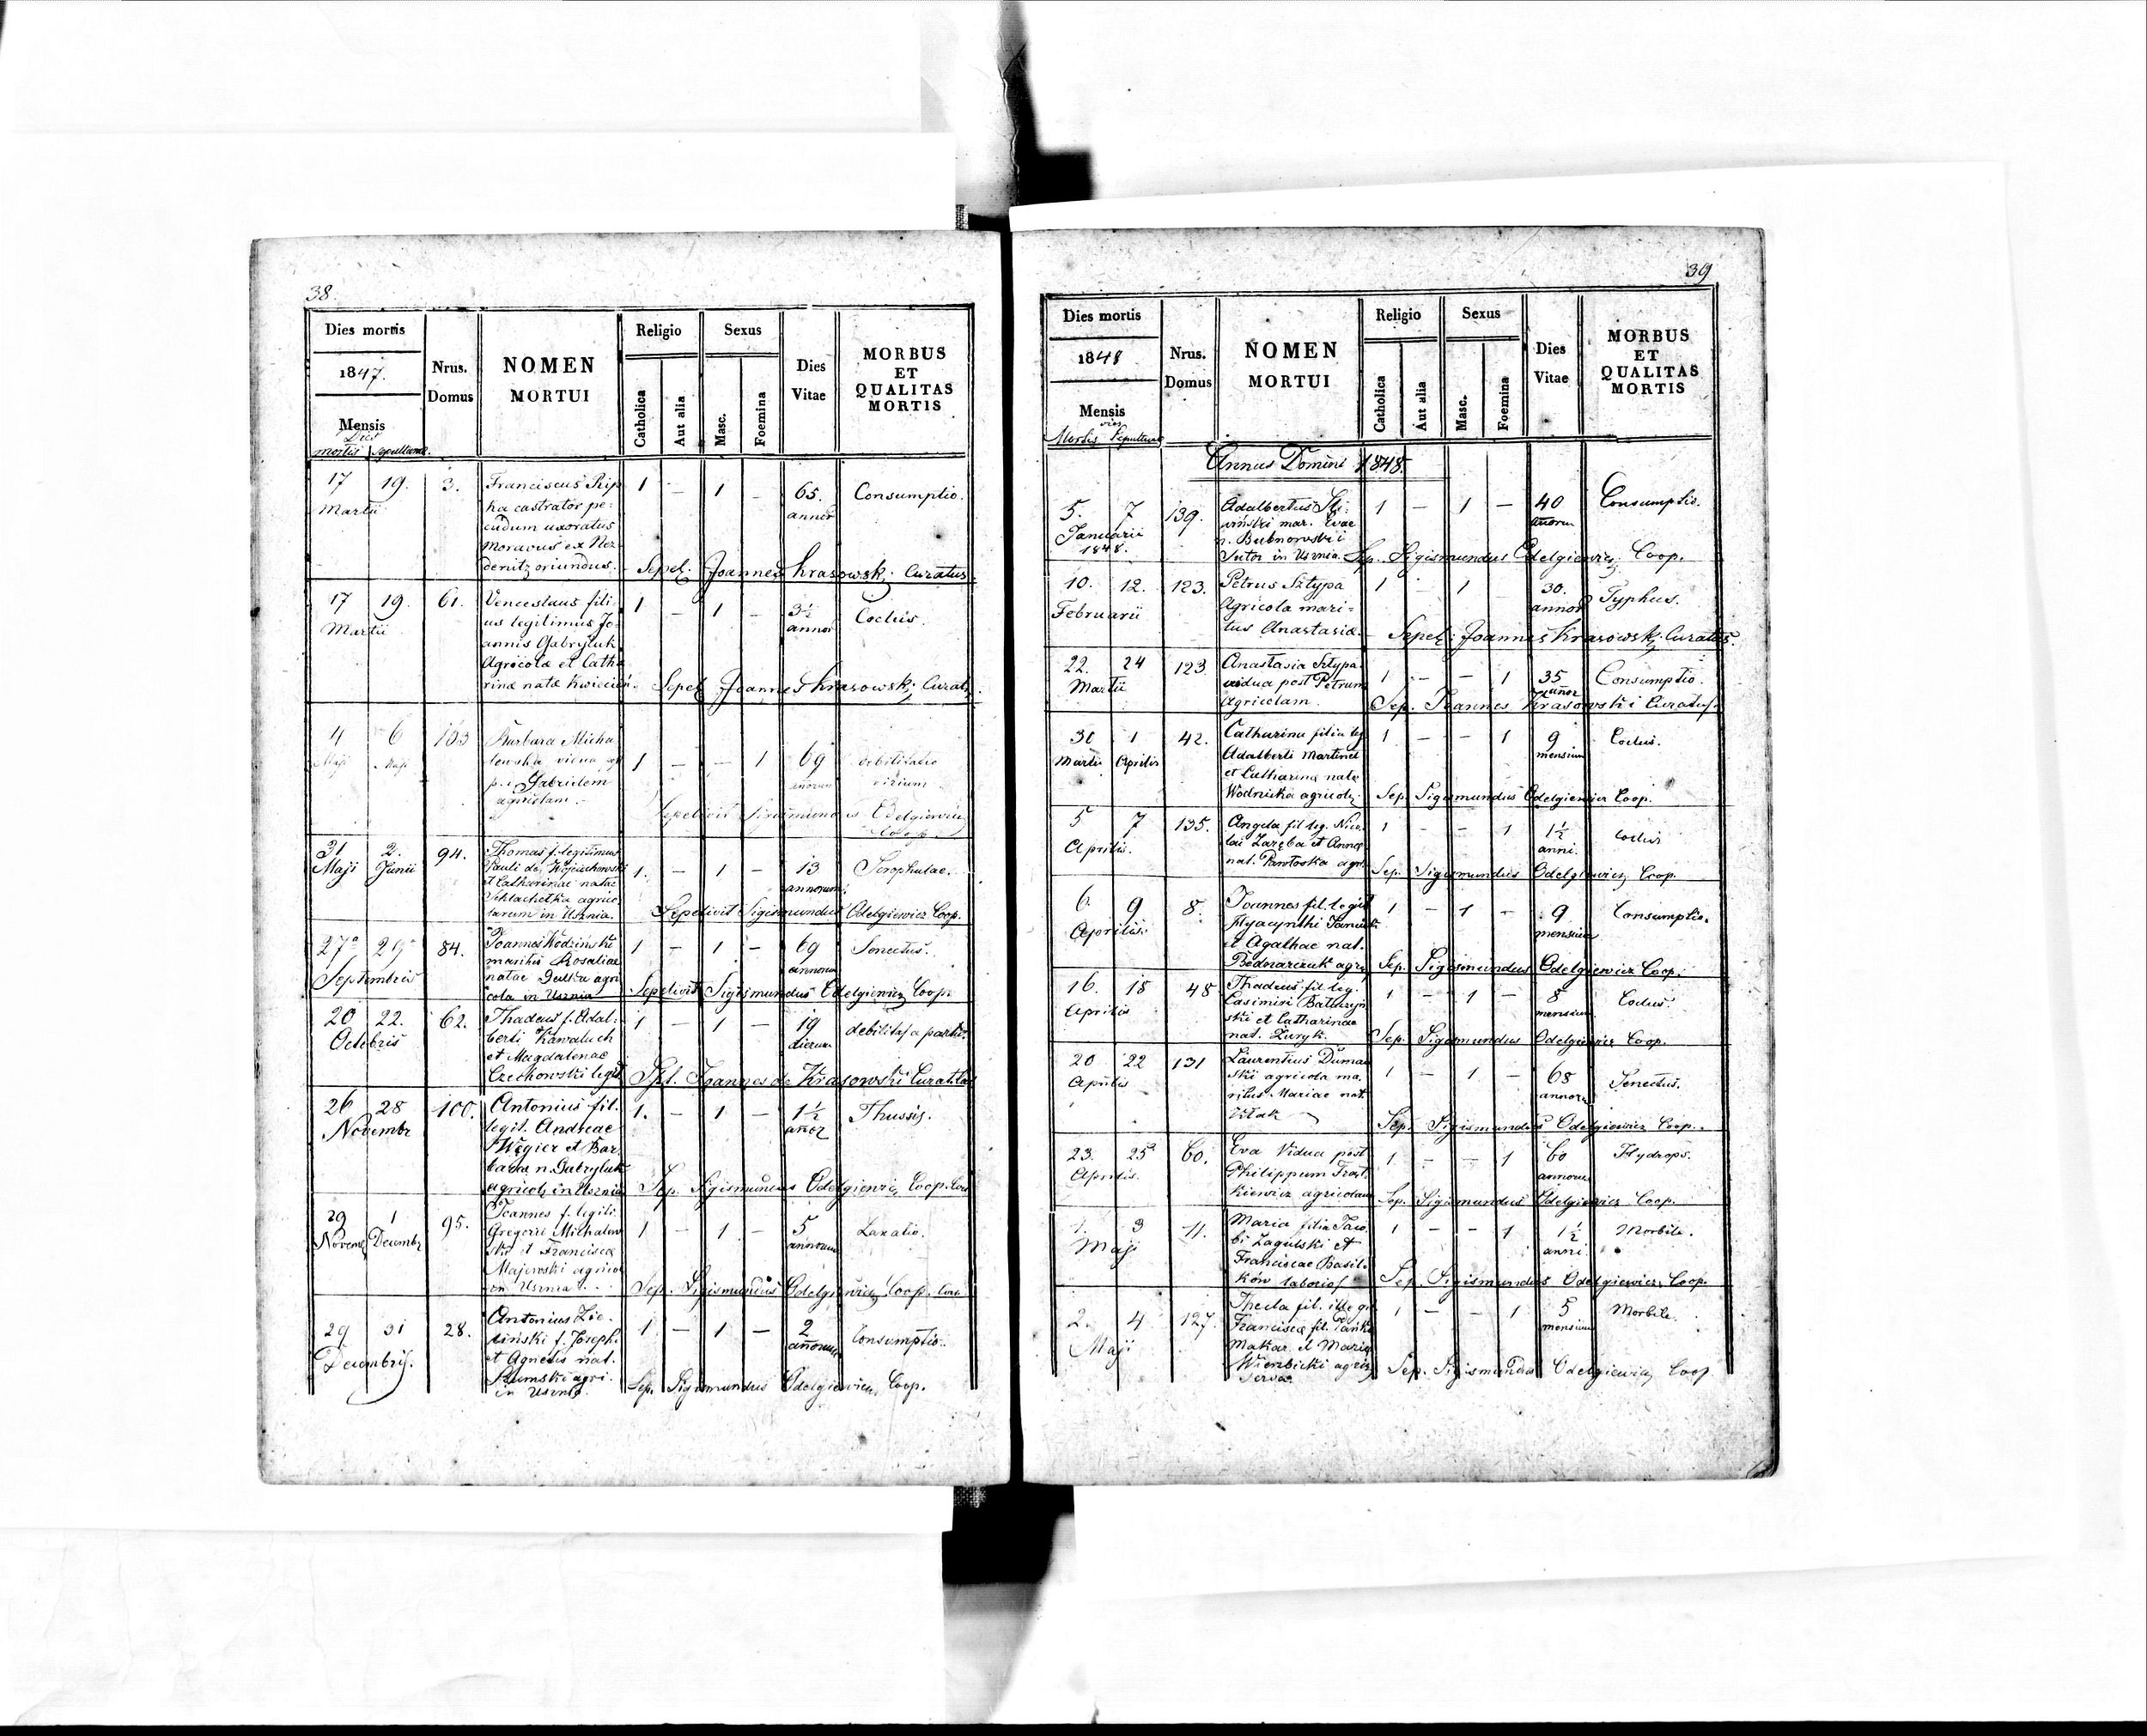 38.
Dies mortis
1847.
Mensis
Dies
mortis sepulturae.
Nrus.
Domus
NOMEN
MORTUI
Religio
Catholica
Aut alia
Sexus
Masc.
Foemina
Dies
Vitae
MORBUS
ET
QUALITAS
MORTIS
17 19. 3. Franciscus Rip 1 — 1 — 65. Consumptio.
Martii ka castrator pe- annor
cudum uxoratus
Moravus ex Nez
denitz oriundus. Sepel. Joannes Krasowski Curatus.
17 19. 61. Venceslaus fili- 1 — 1. — 3½ Coclus.
Martii us legitimus Jo- annor
annis Gabryluk
Agricolæ et Catha
rinæ natæ Sepel Joannes Krasowski Curat.
4 6 103 Barbara Micha 1 — — 1 69 debilitatio
Maji Maji lowska vidua annorum virium
p. Gabrielem
agricolam.— Sepelivit Sigismundus Odelgiewicz
Coop.
31 2. 94. Thomas f. legitimus 1. — 1 — 13 Scrophulae.
Maji Junii Pauli de Wojciechowski annorum
et Catharinae natae
Schlachetka agrico
larum in Usznia. Sepelivit Sigismundus Odelgiewicz Coop.
27a 29a 84. Joannes 1 — 1 — 69 Senectus.
Septembris maritus Rosaliae annorum
natae agri
cola in Usznia Sepelivit Sigismundus Odelgiewicz Coop.
20 22. 62. Thadeus f. Adal- 1 — 1 — 19 debilitas a partu.
Octobris berti Kowaluch dierum
et Magdalenae
Czechowski legit Spl. Joannes de Krasowski Curatus
26 28 100. Antonius fil. 1. — 1 — 1½ Thussis.
Novembr legit. Andreae
Węgier et Bar
barae n. Gabryluk
agricol. in Usznia Sep. Sigismundus Odelgiewicz Coop.
29 1 95. Joannes f. legiti 1 — 1 — 5 Laxatio.
Novemb Decembr Gregorii Michalow annorum
ski et Franciscæ
Majewski agrico
in Usznia. Sep. Sigismundus Odelgiewicz Coop.
29 31 28. Antonius Zie- 1 — 1 — 2 Consumptio.
Decembris. liński f. Josephi annorum
et Agnetis nat.
Szumski agri.
in Usznia. Sep. Sigismundus Odelgiewicz Coop.
39
Dies mortis
1848
Mensis
dies
Mortis Sepulturae
Nrus.
Domus
NOMEN
MORTUI
Religio
Catholica
Aut alia
Sexus
Masc.
Foemina
Dies
Vitae
MORBUS
ET
QUALITAS
MORTIS
Annus Domini 1848.
5. 7 139. Adalbertus 1 — 1 — 40 Consumptio.
Januarii mar. Evae annorum
1848. n. Bubnowski
Sutor in Usznia. Sep. Sigismundus Odelgiewicz Coop.
10. 12. 123. Petrus Sztypa 1 — 1 — 30. Typhus.
Februarii Agricola mari- annor
tus Anastasiæ. Sepel: Joannes Krasowski Curatus.
22. 24 123. Anastasia Sztypa 1 — — 1 35 Consumptio.
Martii vidua post Petrum annor
Agricolam. Sep. Joannes Krasowski Curatus.
30 1 42. Catharina filia leg 1 — — 1 9 Coclus.
Martii Aprilis Adalberti Martinek mensium
et Catharinæ natæ
Wodnicka agricol. Sep. Sigismundus Odelgiewicz Coop.
5 7 135. Angela fil leg. Nico- 1 — — 1 1½ coclus
Aprilis. lai Zaręba et Annæ anni.
nat. Pawłoska agr. Sep. Sigismundus Odelgiewicz Coop.
6. 9 8. Joannes fil. legit 1 — 1 — 9 Consumptio.
Aprilis. Hyacynthi mensium
et Agathae nat.
Bednarczuk agr. Sep. Sigismundus Odelgiewicz Coop.
16. 18 48 Thadeus fil leg. 1 — 1 — 8 Coclus.
Aprilis Casimiri mensium
ski et Catharinae
nat. Żuryk. Sep. Sigismundus Odelgiewicz Coop.
20 22 131 Laurentius Duman 1 — 1 — 68 Senectus.
Aprilis ski agricola ma- annor
ritus Mariae nat.
Sep. Sigismundus Odelgiewicz Coop.
23. 25 60. Eva Vidua post 1 — — 1 60 Hydrops.
Aprilis. Philippum annorum
kiewicz agricolam Sep. Sigismundus Odelgiewicz Coop.
1. 3 11. Maria filia Jaco 1 — — 1 1½ Morbile.
Maji bi Zagulski et anni.
Franciscae Basil-
ków Sep. Sigismundus Odelgiewicz Coop.
2. 4 127. Thecla fil. illeg. 1 — — 1 5 Morbile.
Maji Franciscæ fil. mensium
Makar. et Mariæ
Wierzbicki agric.
Servæ. Sep. Sigismundus Odelgiewicz Coop